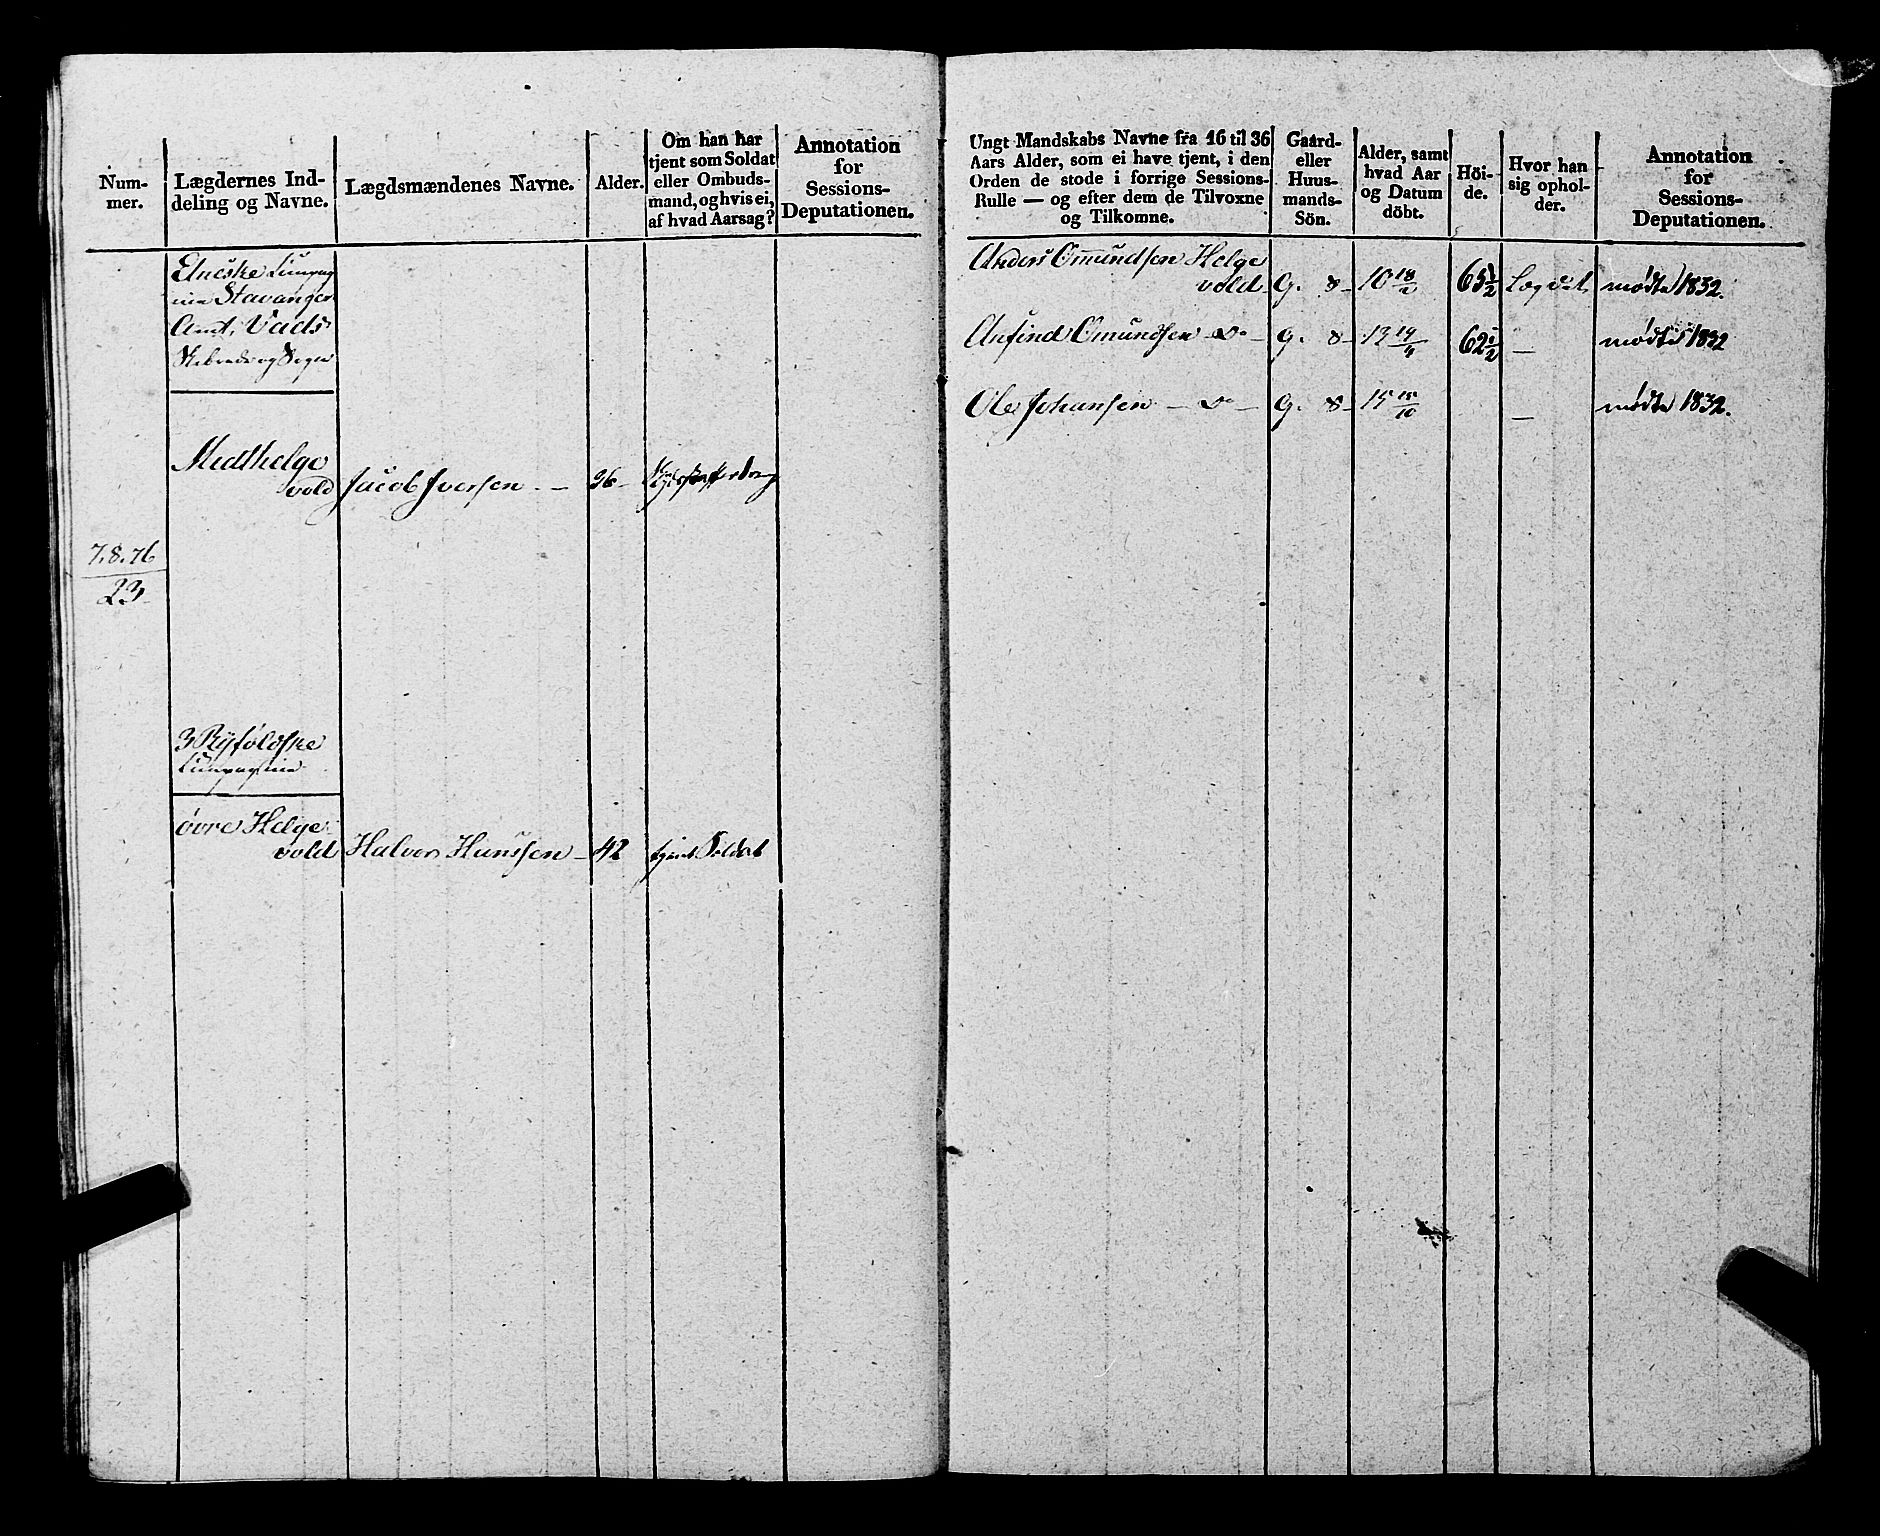 Num-
mer.
Lægdernes Ind-
deling og Navne.
Lægdsmændenes Navne.
Alder.
Om han har
tjent som Soldat
eller Ombuds-
mand, og hvis ei,
af hvad Aarsag?
Annotation
for
Sessions-
Deputationen.
Stavanger
Amt,
Medthelge
vold Jacob Iversen - 36-
7.8.76
23
3 Ryføldske
Compagnie
øvre Helge-
vold Halvor Hansen - 42 tjent Soldat
Ungt Mandskabs Navne fra 16 til 36
Aars Alder, som ei have tjent, i den
Orden de stode i forrige Sessions-
Rulle — og efter dem de Tilvoxne
og Tilkomne.
Gaard-
eller
Huus-
mands-
Sön.
Alder, samt
hvad Aar
og Datum
döbt.
Höi-
de.
Hvor han
sig ophol-
der.
Annotation
for
Sessions-
Deputationen.
Anders Omundsen Helge
vold G. 8- 10 18/2 65 1/2 mødte 1832.
Anfind Omundsen - Do - G. 8- 13 14/4 62 1/2 — mødte 1832
Ole Johansen - Do - G. 8- 15 15/10 — mødte 1832.